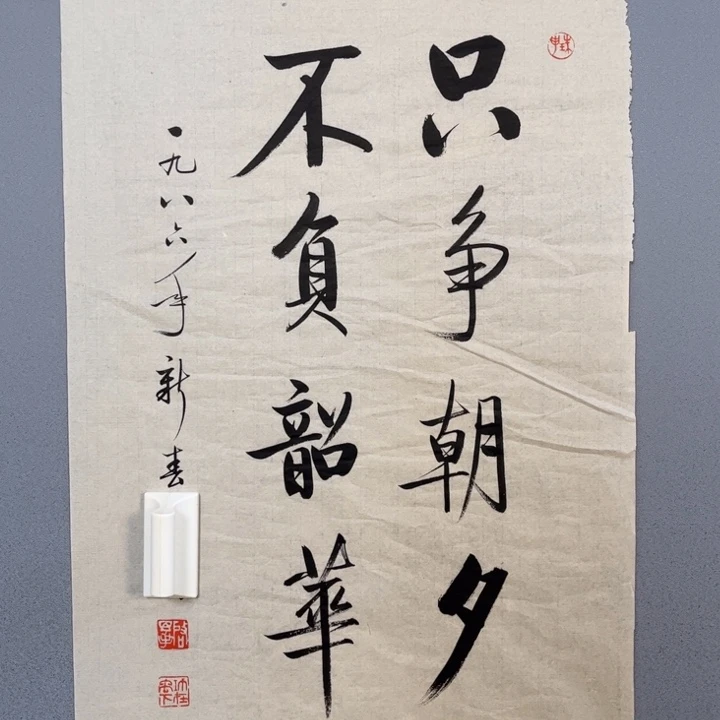 只争朝夕
不负韶華
一九八六年新春